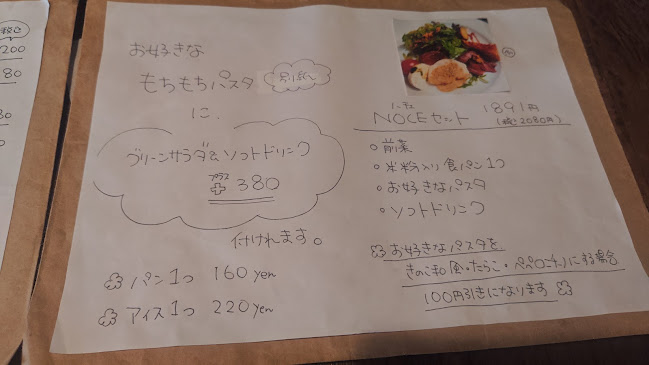 税込
200
80
80
お好きな
もちもちパスタ 別紙
に
グリーンサラダ&ソフトドリンク
プラス
+ 380
付けれます。
パン1つ 160 yen
アイス1つ 220 yen
ノーチェ
NOCEセット 1891円
(税込2080円)
○前菜
○米粉入り食パン1つ
○お好きなパスタ
○ソフトドリンク
お好きなパスタを
きのこ和風・たらこ・ペペロンチーノにする場合
100円引きになります